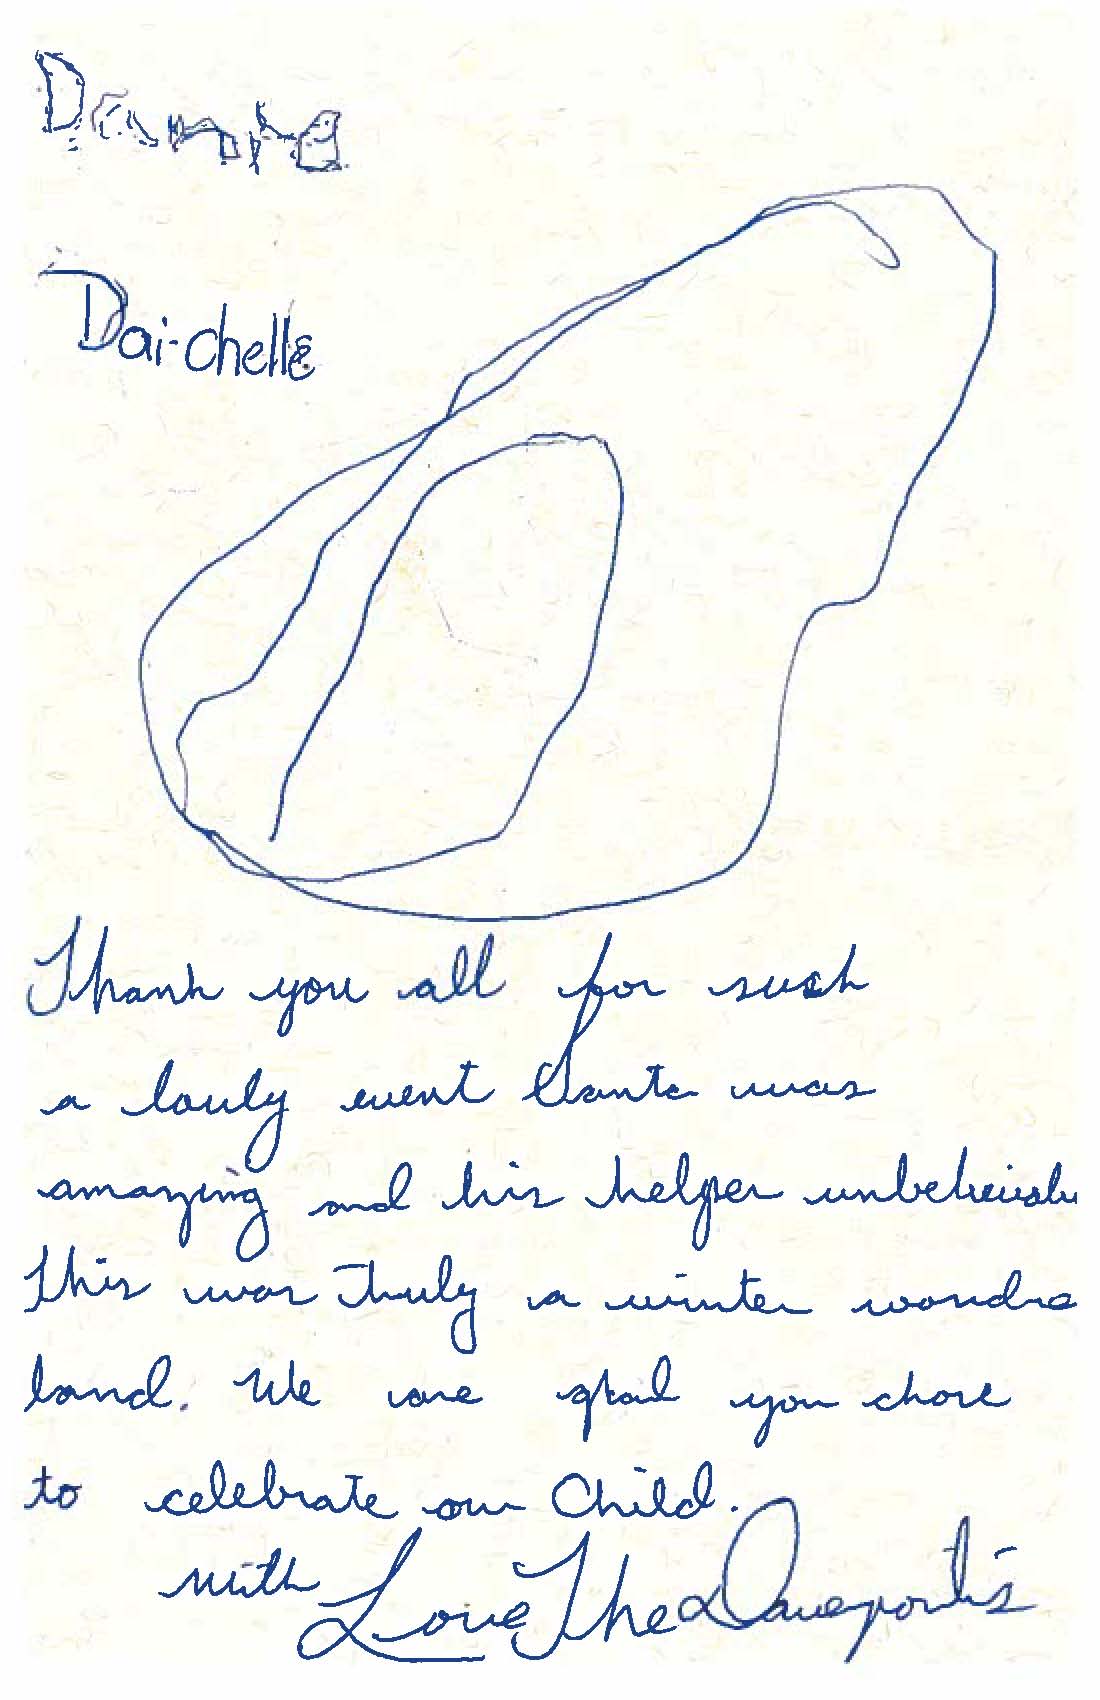 Dai-chelle
Thank you all for such
a lovely event Santa was
amazing and his helper
This was Truly a winter wondre
land. We are glad you chose
to celebrate our Child.
with Love The Davenport's